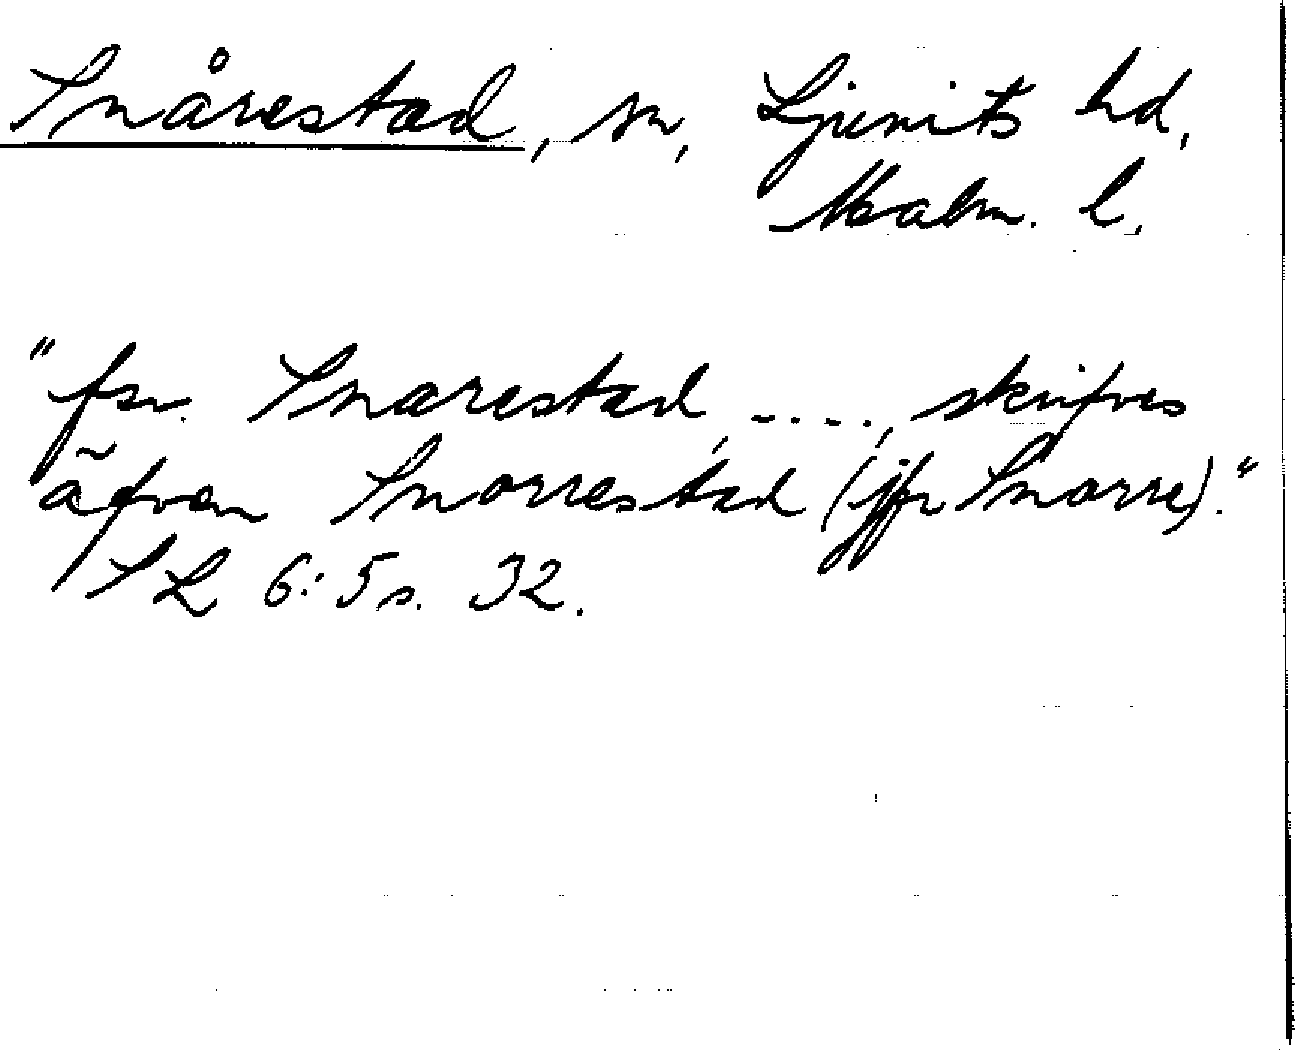 Snårestad, sn, Ljunits hd,
Malm. l.
"fsv. Snarestad, ...., skrifves
äfven Snorrestad (jfr Snorre)."
SL 6:5 s. 32.